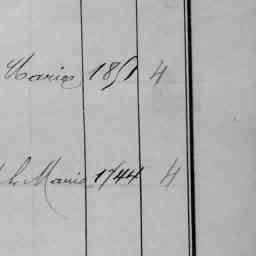 Maria 1851 4
h. Maria 1744 4